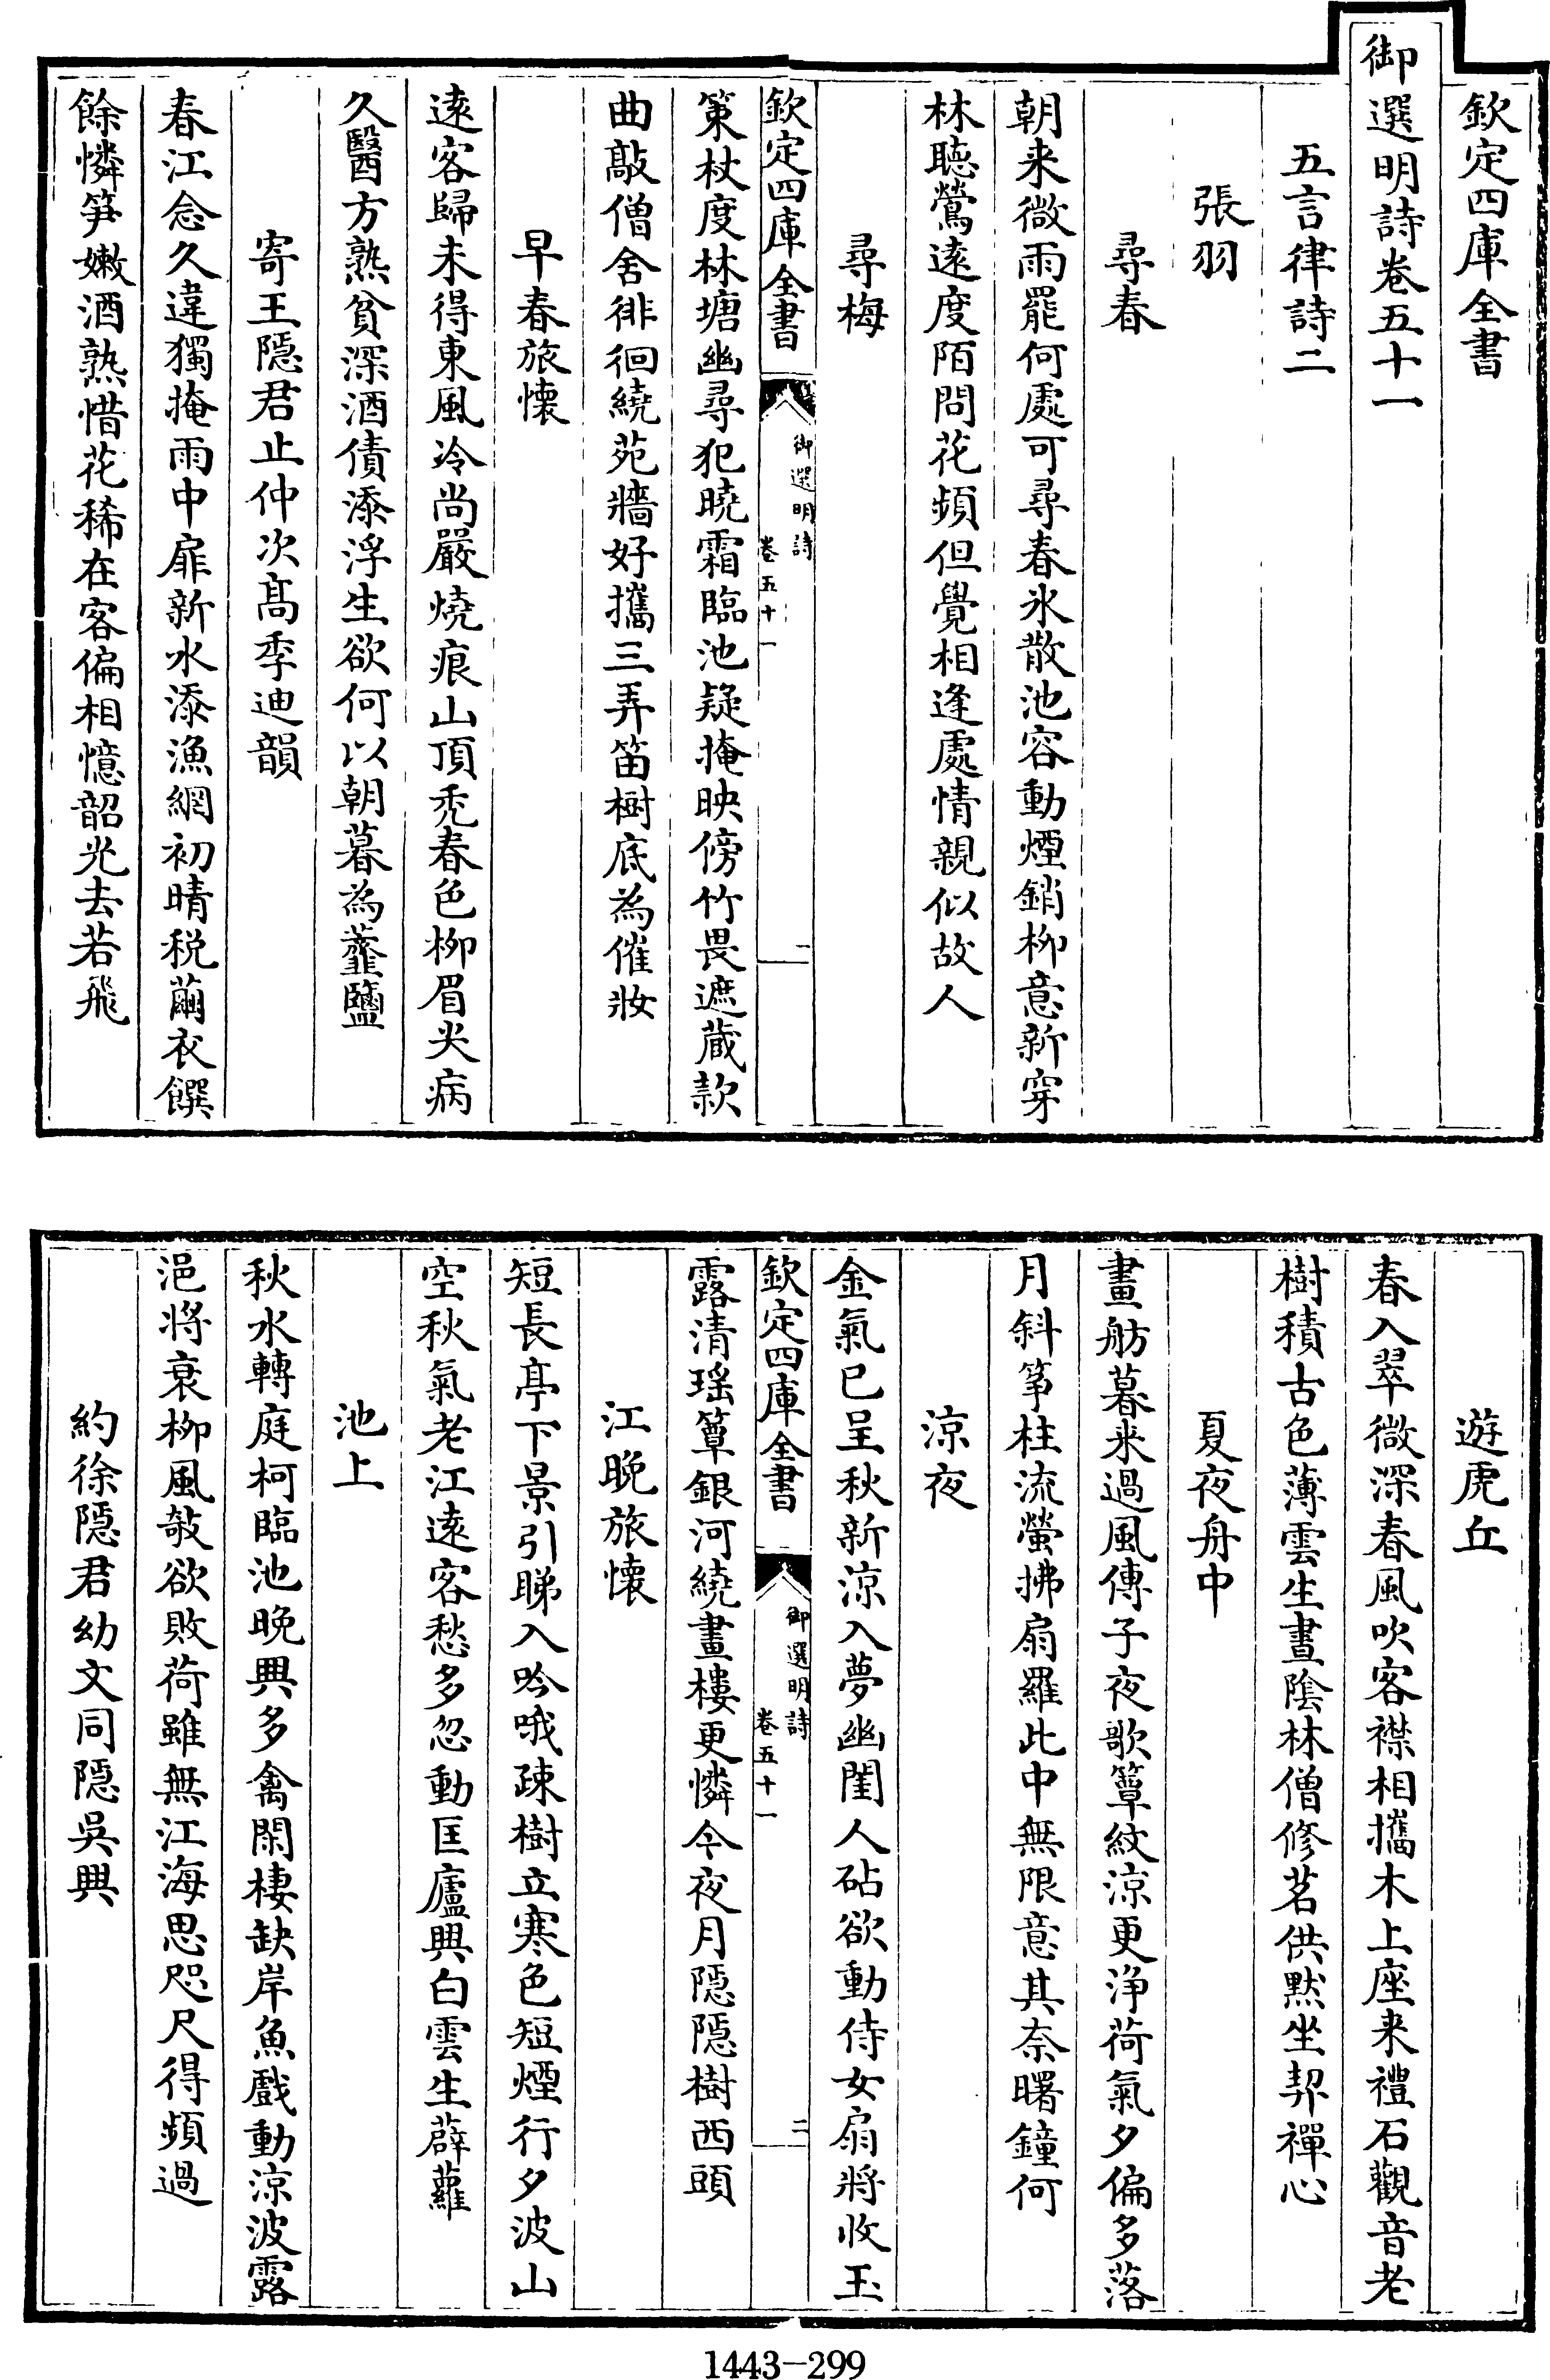 欽定四庫全書
御選明詩卷五十一
五言律詩二
張羽
尋春
朝来微雨罷何處可尋春氷散池容動煙銷柳意新穿
林聴鶯遠度陌問花頻但覺相逢處情親似故人
尋梅
欽定四庫全書
御選明詩
卷五十一
一
策杖度林塘幽尋犯曉霜臨池疑掩映傍竹畏遮蔵款
曲敲僧舍徘徊繞苑牆好攜三弄笛樹底為催妝
早春旅懷
遠客歸未得東風冷尚嚴燒痕山頂禿春色柳眉尖病
久醫方熟貧深酒債添浮生欲何以朝暮為虀鹽
寄王隠君止仲次髙季迪韻
春江念久違獨掩雨中扉新水添漁網初晴税繭衣饌
餘憐笋嫩酒熟惜花稀在客偏相憶韶光去若飛
遊虎丘
春入翠微深春風吹客襟相攜木上座来禮石觀音老
樹積古色薄雲生晝陰林僧修茗供黙坐契禪心
夏夜舟中
畫舫暮来過風傳子夜歌簟紋涼更浄荷氣夕偏多落
月斜筝柱流螢拂扇羅此中無限意其奈曙鐘何
涼夜
金氣已呈秋新涼入夢幽閨人砧欲動侍女扇將收玉
欽定四庫全書
御選明詩
卷五十一
二
露清瑶簟銀河繞畫樓更憐今夜月隠隠樹西頭
江晩旅懷
短長亭下景引睇入吟哦疎樹立寒色短煙行夕波山
空秋氣老江遠客愁多忽動匡廬興白雲生薜蘿
池上
秋水轉庭柯臨池晩興多禽閑棲缺岸魚戲動涼波露
浥將衰柳風欹欲敗荷雖無江海思咫尺得頻過
約徐隠君幼文同隠吳興
1443-299